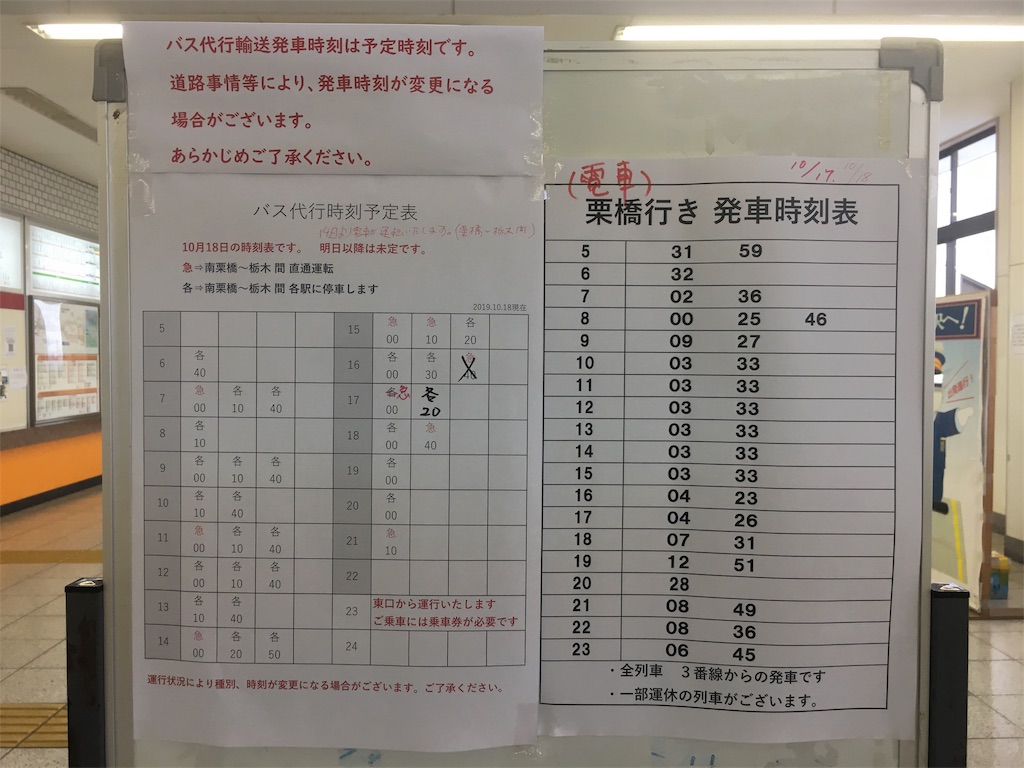 バス代行輸送発車時刻は予定時刻です。
道路事情等により、発車時刻が変更になる
場合がございます。
あらかじめご了承ください。
バス代行時刻予定表
10月18日の時刻表です。 明日以降は未定です。
急⇒南栗橋～栃木 間 直通運転
各⇒南栗橋～栃木 間 各駅に停車します
2019.10.18現在
5
6 各40
7 急00 各10 各40
8 各10
9 各00 各10 各40
10 各10 各40
11 急00 各10 各40
12 各00 各10 各40
13 各10 各40
14 急00 各20 各50
15 急00 急10 各20
16 各00 各30
17 急00 各20
18 各00 急40
19 各00
20 各00
21 急10
22
23 東口から運行いたします
ご乗車には乗車券が必要です
24
運行状況により種別、時刻が変更になる場合がございます。ご了承ください。
10/17. 10/18
(電車)
栗橋行き 発車時刻表
5 31 59
6 32
7 02 36
8 00 25 46
9 09 27
10 03 33
11 03 33
12 03 33
13 03 33
14 03 33
15 03 33
16 04 23
17 04 26
18 07 31
19 12 51
20 28
21 08 49
22 08 36
23 06 45
・全列車 3番線からの発車です
・一部運休の列車がございます。